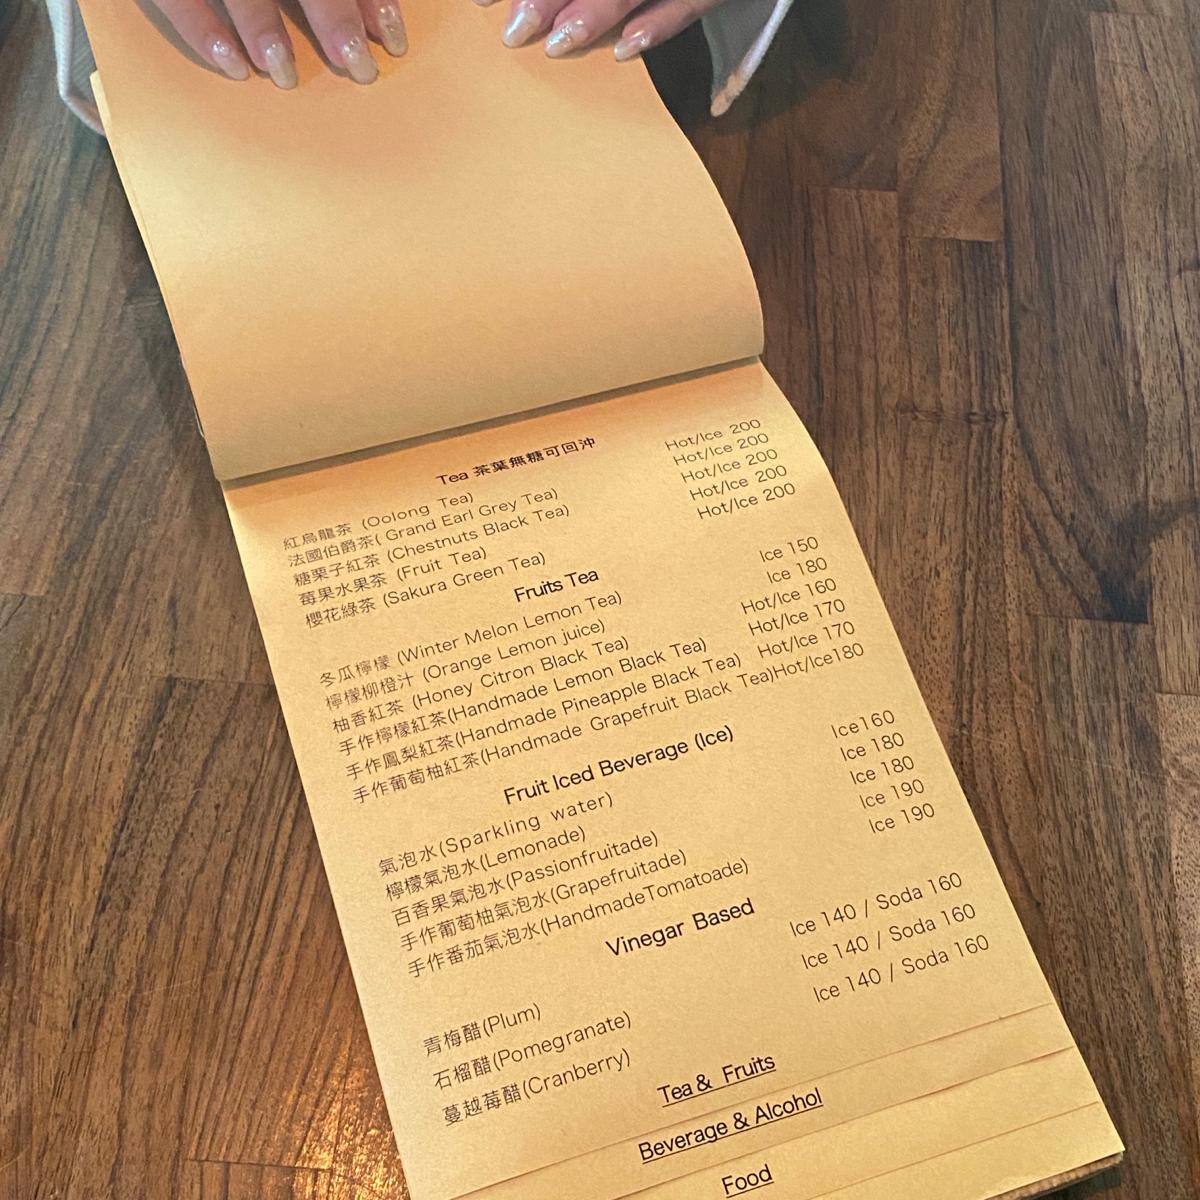 Tea 茶葉無糖可回沖
紅烏龍茶 (Oolong Tea) Hot/Ice 200
法國伯爵茶( Grand Earl Grey Tea) Hot/Ice 200
糖栗子紅茶 (Chestnuts Black Tea) Hot/Ice 200
莓果水果茶 (Fruit Tea) Hot/Ice 200
櫻花綠茶 (Sakura Green Tea) Hot/Ice 200
Fruits Tea
冬瓜檸檬 (Winter Melon Lemon Tea) Ice 150
檸檬柳橙汁 (Orange Lemon juice) Ice 180
柚香紅茶 (Honey Citron Black Tea) Hot/Ice 160
手作檸檬紅茶(Handmade Lemon Black Tea) Hot/Ice 170
手作鳳梨紅茶(Handmade Pineapple Black Tea) Hot/Ice 170
手作葡萄柚紅茶(Handmade Grapefruit Black Tea)Hot/Ice180
Fruit Iced Beverage (Ice)
氣泡水(Sparkling water) Ice160
檸檬氣泡水(Lemonade) Ice 180
百香果氣泡水(Passionfruitade) Ice 180
手作葡萄柚氣泡水(Grapefruitade) Ice 190
手作番茄氣泡水(HandmadeTomatoade) Ice 190
Vinegar Based
青梅醋(Plum) Ice 140 / Soda 160
石榴醋(Pomegranate) Ice 140 / Soda 160
蔓越莓醋(Cranberry) Ice 140 / Soda 160
Tea & Fruits
Beverage & Alcohol
Food